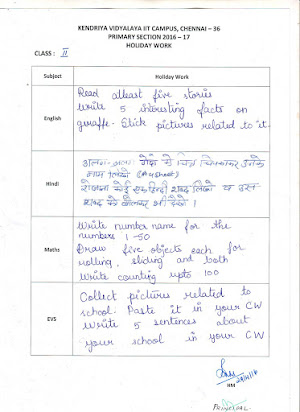 KENDRIYA VIDYALAYA IIT CAMPUS, CHENNAI – 36
PRIMARY SECTION 2016 – 17
HOLIDAY WORK
CLASS : II
Subject Holiday Work
English
Read atleast five stories
Write 5 interesting facts on
giraffe. Stick pictures related to it.
Hindi
अलग-अलग के चित्र चिपकाकर उनके
नाम लिखो
रोजाना कोई एक हिन्दी शब्द लिखो व उस
शब्द को बोलकर भी देखो।
Maths
Write number name for the
numbers 1-50
Draw five objects each for
rolling, sliding and both
Write counting upto 100
EVS
Collect pictures related to
school. Paste it in your CW
Write 5 sentences about
your school in your CW
HM
PRINCIPAL